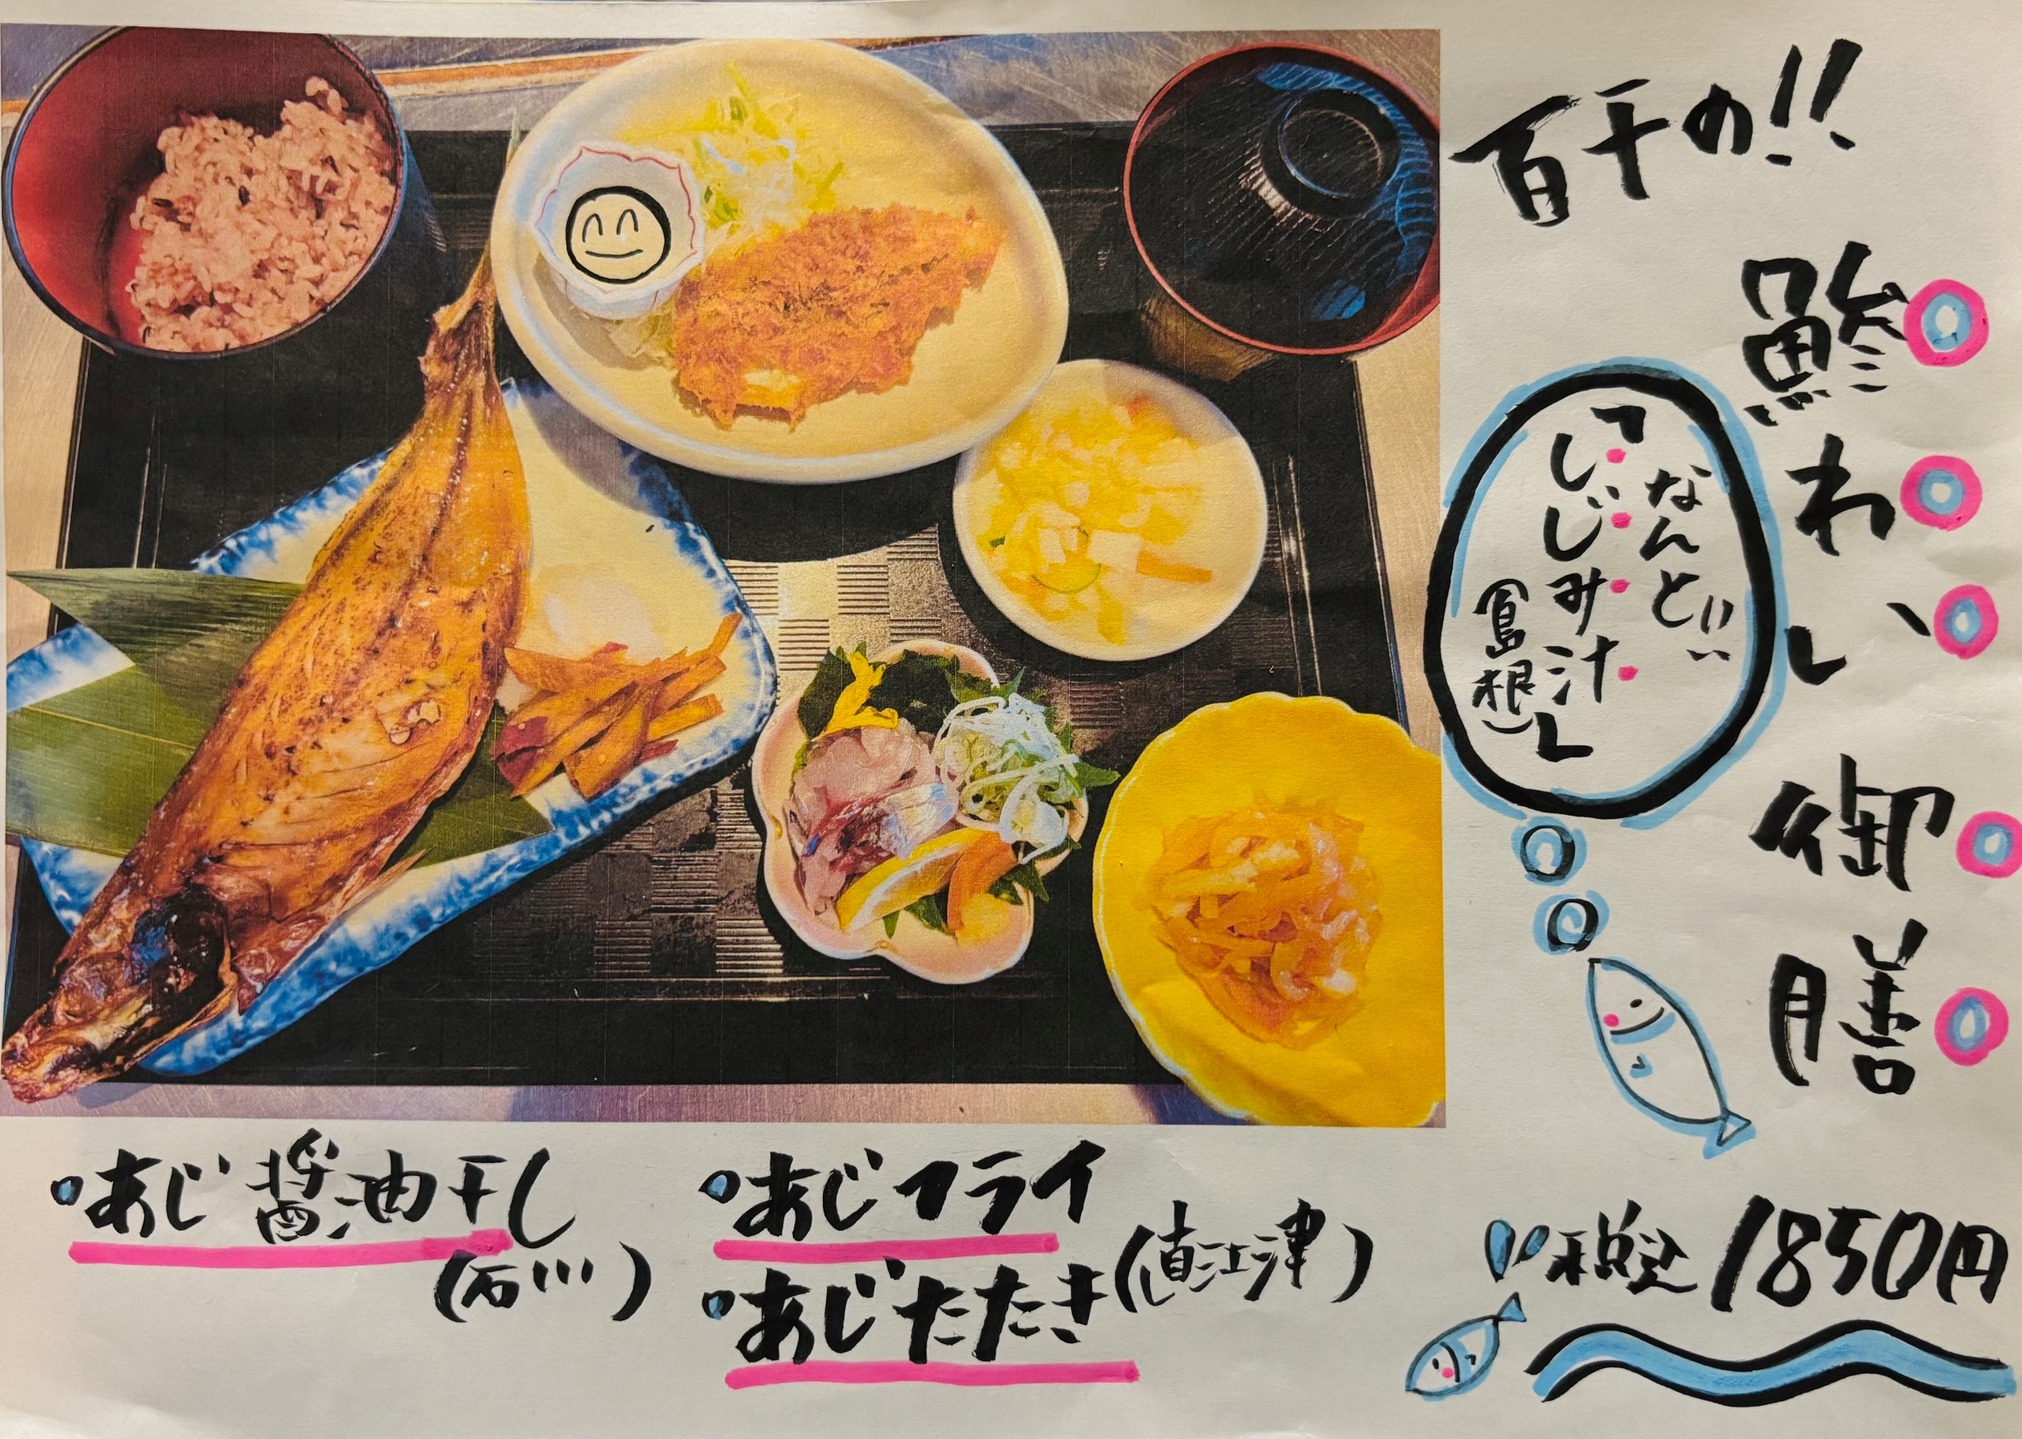 百千の!!
鯵わい御膳
なんと!!
「しじみ汁」
(島根)
あじ醤油干し
(石川)
あじフライ
あじたたき
(直江津)
税込1850円